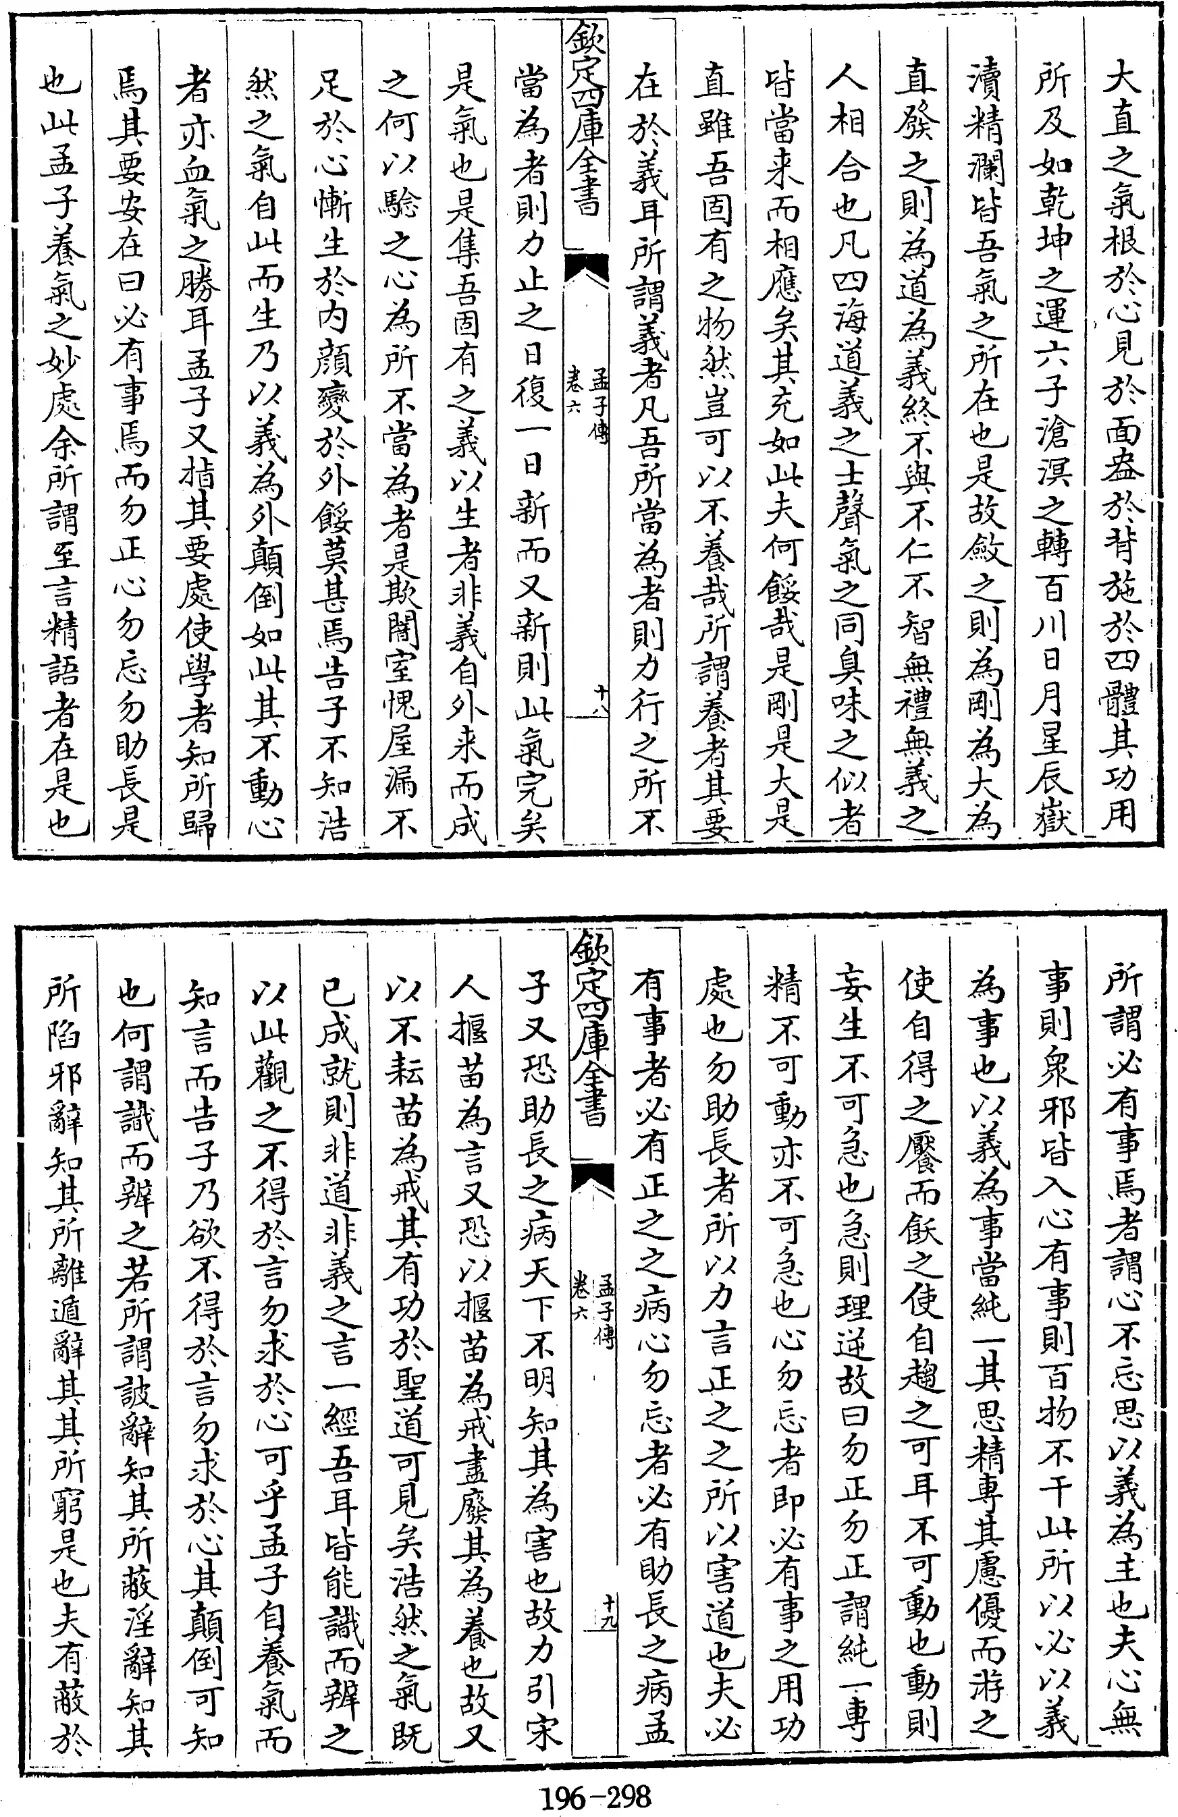 大直之氣根於心見於面盎於背施於四體其功用
所及如乾坤之運六子滄溟之轉百川日月星辰嶽
瀆精瀾皆吾氣之所在也是故斂之則為剛為大為
直發之則為道為義終不與不仁不智無禮無義之
人相合也凡四海道義之士聲氣之同臭味之似者
皆當来而相應矣其充如此夫何餒哉是剛是大是
直雖吾固有之物然豈可以不養哉所謂養者其要
在於義耳所謂義者凡吾所當為者則力行之所不
欽定四庫全書
孟子傳
卷六
十八
當為者則力止之日復一日新而又新則此氣完矣
是氣也是集吾固有之義以生者非義自外来而成
之何以驗之心為所不當為者是欺闇室愧屋漏不
足於心慚生於内顔變於外餒莫甚焉告子不知浩
然之氣自此而生乃以義為外顛倒如此其不動心
者亦血氣之勝耳孟子又指其要處使學者知所歸
焉其要安在曰必有事焉而勿正心勿忘勿助長是
也此孟子養氣之妙處余所謂至言精語者在是也
所謂必有事焉者謂心不忘思以義為主也夫心無
事則衆邪皆入心有事則百物不干此所以必以義
為事也以義為事當純一其思精專其慮優而游之
使自得之饜而飫之使自趨之可耳不可動也動則
妄生不可急也急則理逆故曰勿正勿正謂純一專
精不可動亦不可急也心勿忘者即必有事之用功
處也勿助長者所以力言正之之所以害道也夫必
有事者必有正之之病心勿忘者必有助長之病孟
欽定四庫全書
孟子傳
卷六
十九
子又恐助長之病天下不明知其為害也故力引宋
人揠苗為言又恐以揠苗為戒盡廢其為養也故又
以不耘苗為戒其有功於聖道可見矣浩然之氣既
已成就則非道非義之言一經吾耳皆能識而辨之
以此觀之不得於言勿求於心可乎孟子自養氣而
知言而告子乃欲不得於言勿求於心其顛倒可知
也何謂識而辨之若所謂詖辭知其所蔽淫辭知其
所陷邪辭知其所離遁辭其其所窮是也夫有蔽於
196-298